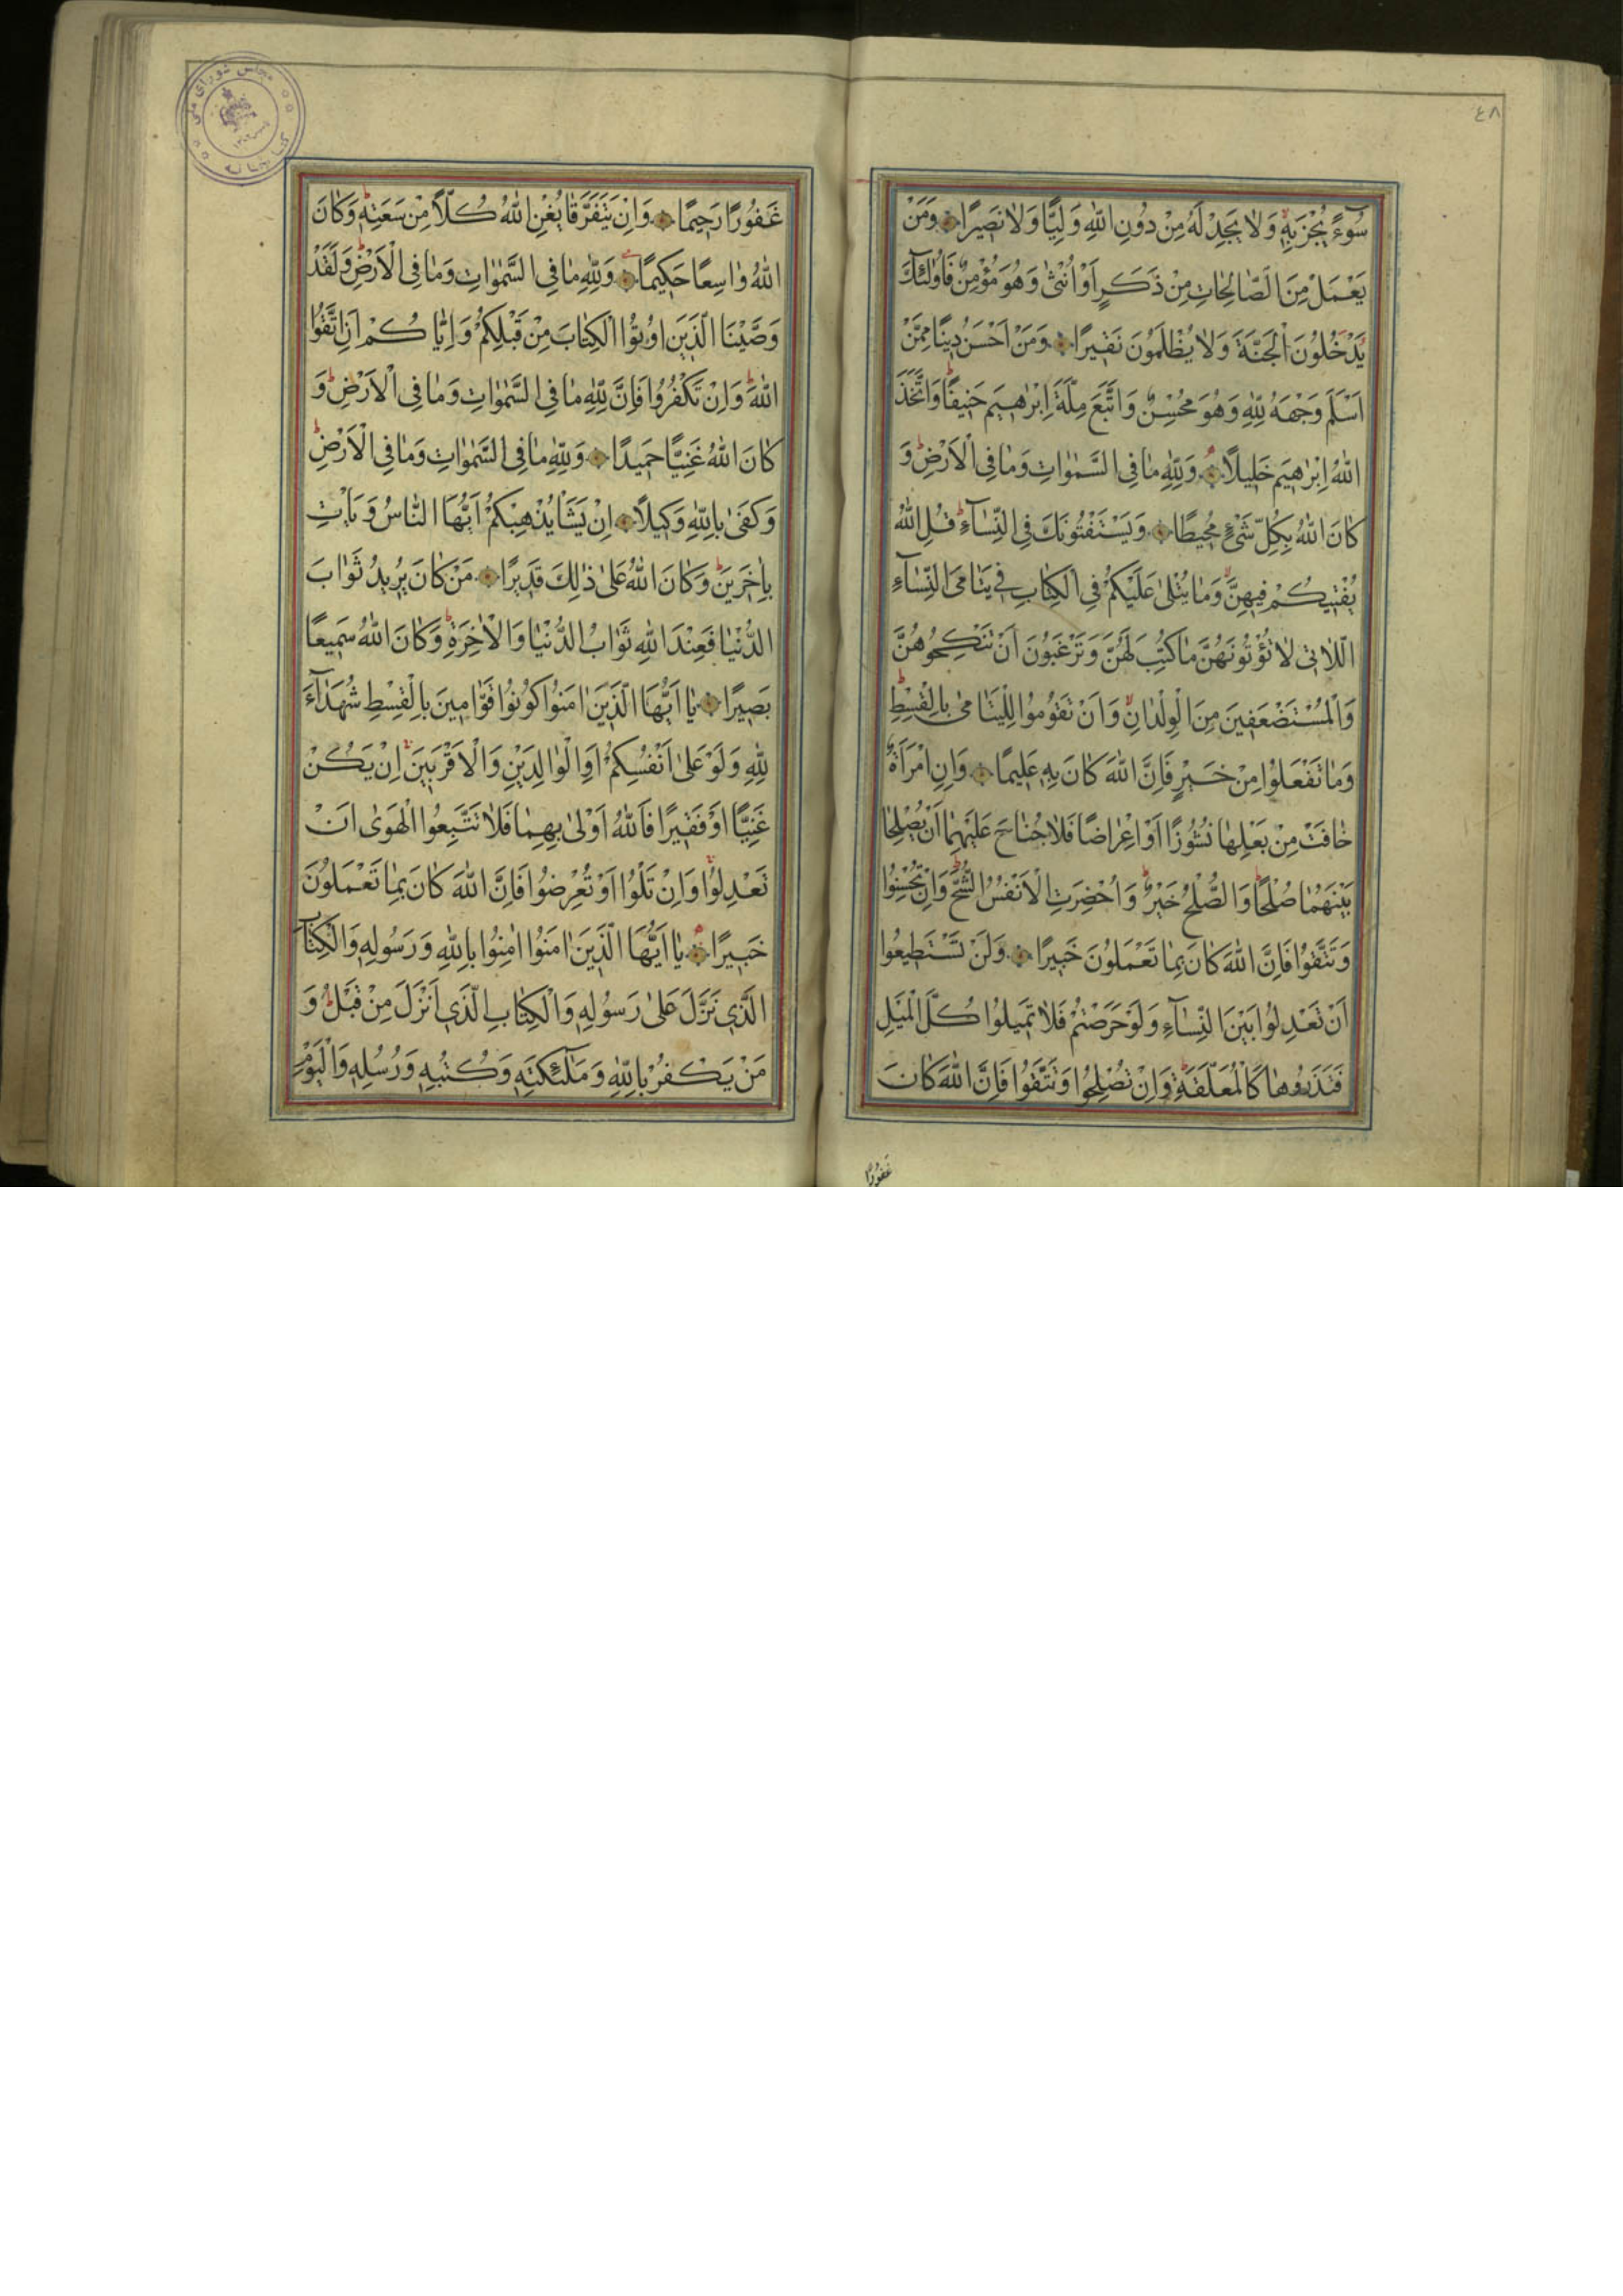 ٤٨
سُوٓءً يُجْزَ بِهٖ وَلَا يَجِدْ لَهُ مِنْ دُونِ اللّٰهِ وَلِيًّا وَلَا نَصِيرًا وَمَنْ
يَعْمَلْ مِنَ الصَّالِحَاتِ مِنْ ذَكَرٍ اَوْ اُنْثٰى وَهُوَ مُؤْمِنٌ فَاُولٰئِكَ
يَدْخُلُونَ الْجَنَّةَ وَلَا يُظْلَمُونَ نَقِيرًا وَمَنْ اَحْسَنُ دِينًا مِمَّنْ
اَسْلَمَ وَجْهَهُ لِلّٰهِ وَهُوَ مُحْسِنٌ وَاتَّبَعَ مِلَّةَ اِبْرٰهِيمَ حَنِيفًا وَاتَّخَذَ
اللّٰهُ اِبْرٰهِيمَ خَلِيلًا وَلِلّٰهِ مَا فِي السَّمٰوَاتِ وَمَا فِي الْاَرْضِ وَ
كَانَ اللّٰهُ بِكُلِّ شَيْءٍ مُحِيطًا وَيَسْتَفْتُونَكَ فِي النِّسَآءِ قُلِ اللّٰهُ
يُفْتِيكُمْ فِيهِنَّ وَمَا يُتْلٰى عَلَيْكُمْ فِي الْكِتَابِ فِي يَتَامَى النِّسَآءِ
اللّاٰتِي لَا تُؤْتُونَهُنَّ مَا كُتِبَ لَهُنَّ وَتَرْغَبُونَ اَنْ تَنْكِحُوهُنَّ
وَالْمُسْتَضْعَفِينَ مِنَ الْوِلْدَانِ وَاَنْ تَقُومُوا لِلْيَتَامٰى بِالْقِسْطِ
وَمَا تَفْعَلُوا مِنْ خَيْرٍ فَاِنَّ اللّٰهَ كَانَ بِهٖ عَلِيمًا وَاِنِ امْرَاَةٌ
خَافَتْ مِنْ بَعْلِهَا نُشُوزًا اَوْ اِعْرَاضًا فَلَا جُنَاحَ عَلَيْهِمَا اَنْ يُصْلِحَا
بَيْنَهُمَا صُلْحًا وَالصُّلْحُ خَيْرٌ وَاُحْضِرَتِ الْاَنْفُسُ الشُّحَّ وَاِنْ تُحْسِنُوا
وَتَتَّقُوا فَاِنَّ اللّٰهَ كَانَ بِمَا تَعْمَلُونَ خَبِيرًا وَلَنْ تَسْتَطِيعُوا
اَنْ تَعْدِلُوا بَيْنَ النِّسَآءِ وَلَوْ حَرَصْتُمْ فَلَا تَمِيلُوا كُلَّ الْمَيْلِ
فَتَذَرُوهَا كَالْمُعَلَّقَةِ وَاِنْ تُصْلِحُوا وَتَتَّقُوا فَاِنَّ اللّٰهَ كَانَ
غَفُورًا
مجلس شورای ملی
کتابخانه
غَفُورًا رَحِيمًا وَاِنْ يَتَفَرَّقَا يُغْنِ اللّٰهُ كُلًّا مِنْ سَعَتِهٖ وَكَانَ
اللّٰهُ وَاسِعًا حَكِيمًا وَلِلّٰهِ مَا فِي السَّمٰوَاتِ وَمَا فِي الْاَرْضِ وَلَقَدْ
وَصَّيْنَا الَّذِينَ اُوتُوا الْكِتَابَ مِنْ قَبْلِكُمْ وَاِيَّاكُمْ اَنِ اتَّقُوا
اللّٰهَ وَاِنْ تَكْفُرُوا فَاِنَّ لِلّٰهِ مَا فِي السَّمٰوَاتِ وَمَا فِي الْاَرْضِ وَ
كَانَ اللّٰهُ غَنِيًّا حَمِيدًا وَلِلّٰهِ مَا فِي السَّمٰوَاتِ وَمَا فِي الْاَرْضِ
وَكَفٰى بِاللّٰهِ وَكِيلًا اِنْ يَشَاْ يُذْهِبْكُمْ اَيُّهَا النَّاسُ وَيَاْتِ
بِاٰخَرِينَ وَكَانَ اللّٰهُ عَلٰى ذٰلِكَ قَدِيرًا مَنْ كَانَ يُرِيدُ ثَوَابَ
الدُّنْيَا فَعِنْدَ اللّٰهِ ثَوَابُ الدُّنْيَا وَالْاٰخِرَةِ وَكَانَ اللّٰهُ سَمِيعًا
بَصِيرًا يَا اَيُّهَا الَّذِينَ اٰمَنُوا كُونُوا قَوَّامِينَ بِالْقِسْطِ شُهَدَآءَ
لِلّٰهِ وَلَوْ عَلٰى اَنْفُسِكُمْ اَوِ الْوَالِدَيْنِ وَالْاَقْرَبِينَ اِنْ يَكُنْ
غَنِيًّا اَوْ فَقِيرًا فَاللّٰهُ اَوْلٰى بِهِمَا فَلَا تَتَّبِعُوا الْهَوٰى اَنْ
تَعْدِلُوا وَاِنْ تَلْوُا اَوْ تُعْرِضُوا فَاِنَّ اللّٰهَ كَانَ بِمَا تَعْمَلُونَ
خَبِيرًا يَا اَيُّهَا الَّذِينَ اٰمَنُوا اٰمِنُوا بِاللّٰهِ وَرَسُولِهٖ وَالْكِتَابِ
الَّذِي نَزَّلَ عَلٰى رَسُولِهٖ وَالْكِتَابِ الَّذِي اَنْزَلَ مِنْ قَبْلُ وَ
مَنْ يَكْفُرْ بِاللّٰهِ وَمَلٰٓئِكَتِهٖ وَكُتُبِهٖ وَرُسُلِهٖ وَالْيَوْمِ